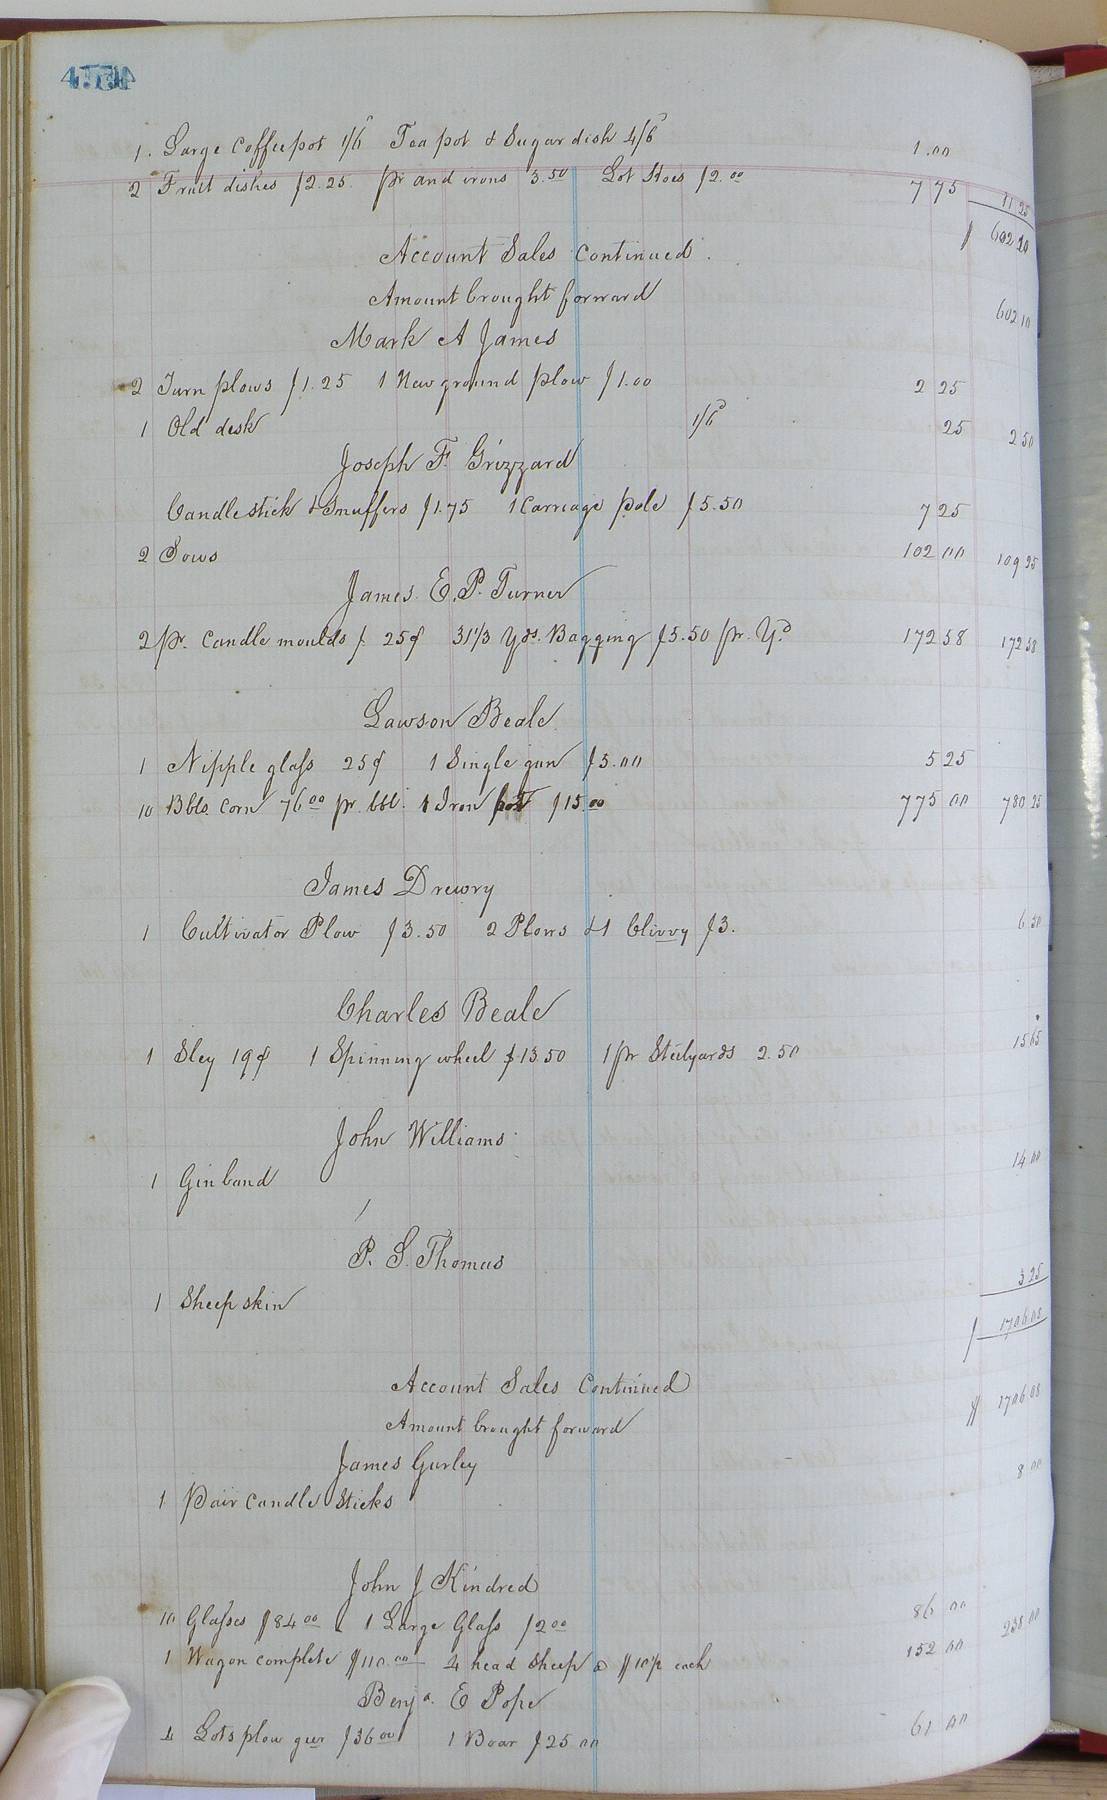 454
1. Large Coffeepot 1/6 Tea pot & Sugar dish 4/6 1.00
2 Fruit dishes $2.25. pr and irons 3.50 Lot Hoes $2.00 7 75 11 25
$ 602 10
Account Sales Continued.
Amount brought forward 602 10
Mark A James
2 Turn plows $1.25 1 New ground plow $1.00 2 25
1 Old desk 1/6 25 2 50
Joseph F. Grizzard
Candlestick & Snuffers $1.75 1 Carriage pole $5.50 7 25
2 Sows 102 00 109 25
James E. P. Turner
2 pr. Candle moulds $. 25¢ 31 1/3 Yds. Bagging $5.50 pr. Yd 172 58 172 58
Lawson Beale
1 Nipple glass 25¢ 1 Single gun $5.00 5 25
10 Bbls. Corn 76 00 pr. bbl. 1 Iron pot $15.00 775 00 780 25
James Drewry
1 Cultivator Plow $3.50 2 Plows & 1 Clivvy $3. 6 50
Charles Beale
1 Sley 19¢ 1 Spinning wheel $13.50 1 pr Steelyards 2.50 15 65
John Williams
1 Gin band 14 00
P. S. Thomas
1 Sheep skin 3 25
$ 1706.08
Account Sales Continued $ 1706 08
Amount brought forward
James Gurley
1 Pair Candle Sticks 8 00
John J Kindred
10 Glasses $84 00 1 Large Glass $2 00 86 00
1 Wagon complete $110.00 4 head Sheep @ $10½ each 152 00 238 00
Benja. E Pope
4 Lots plow gear $36 00 1 Boar $25 00 61 00